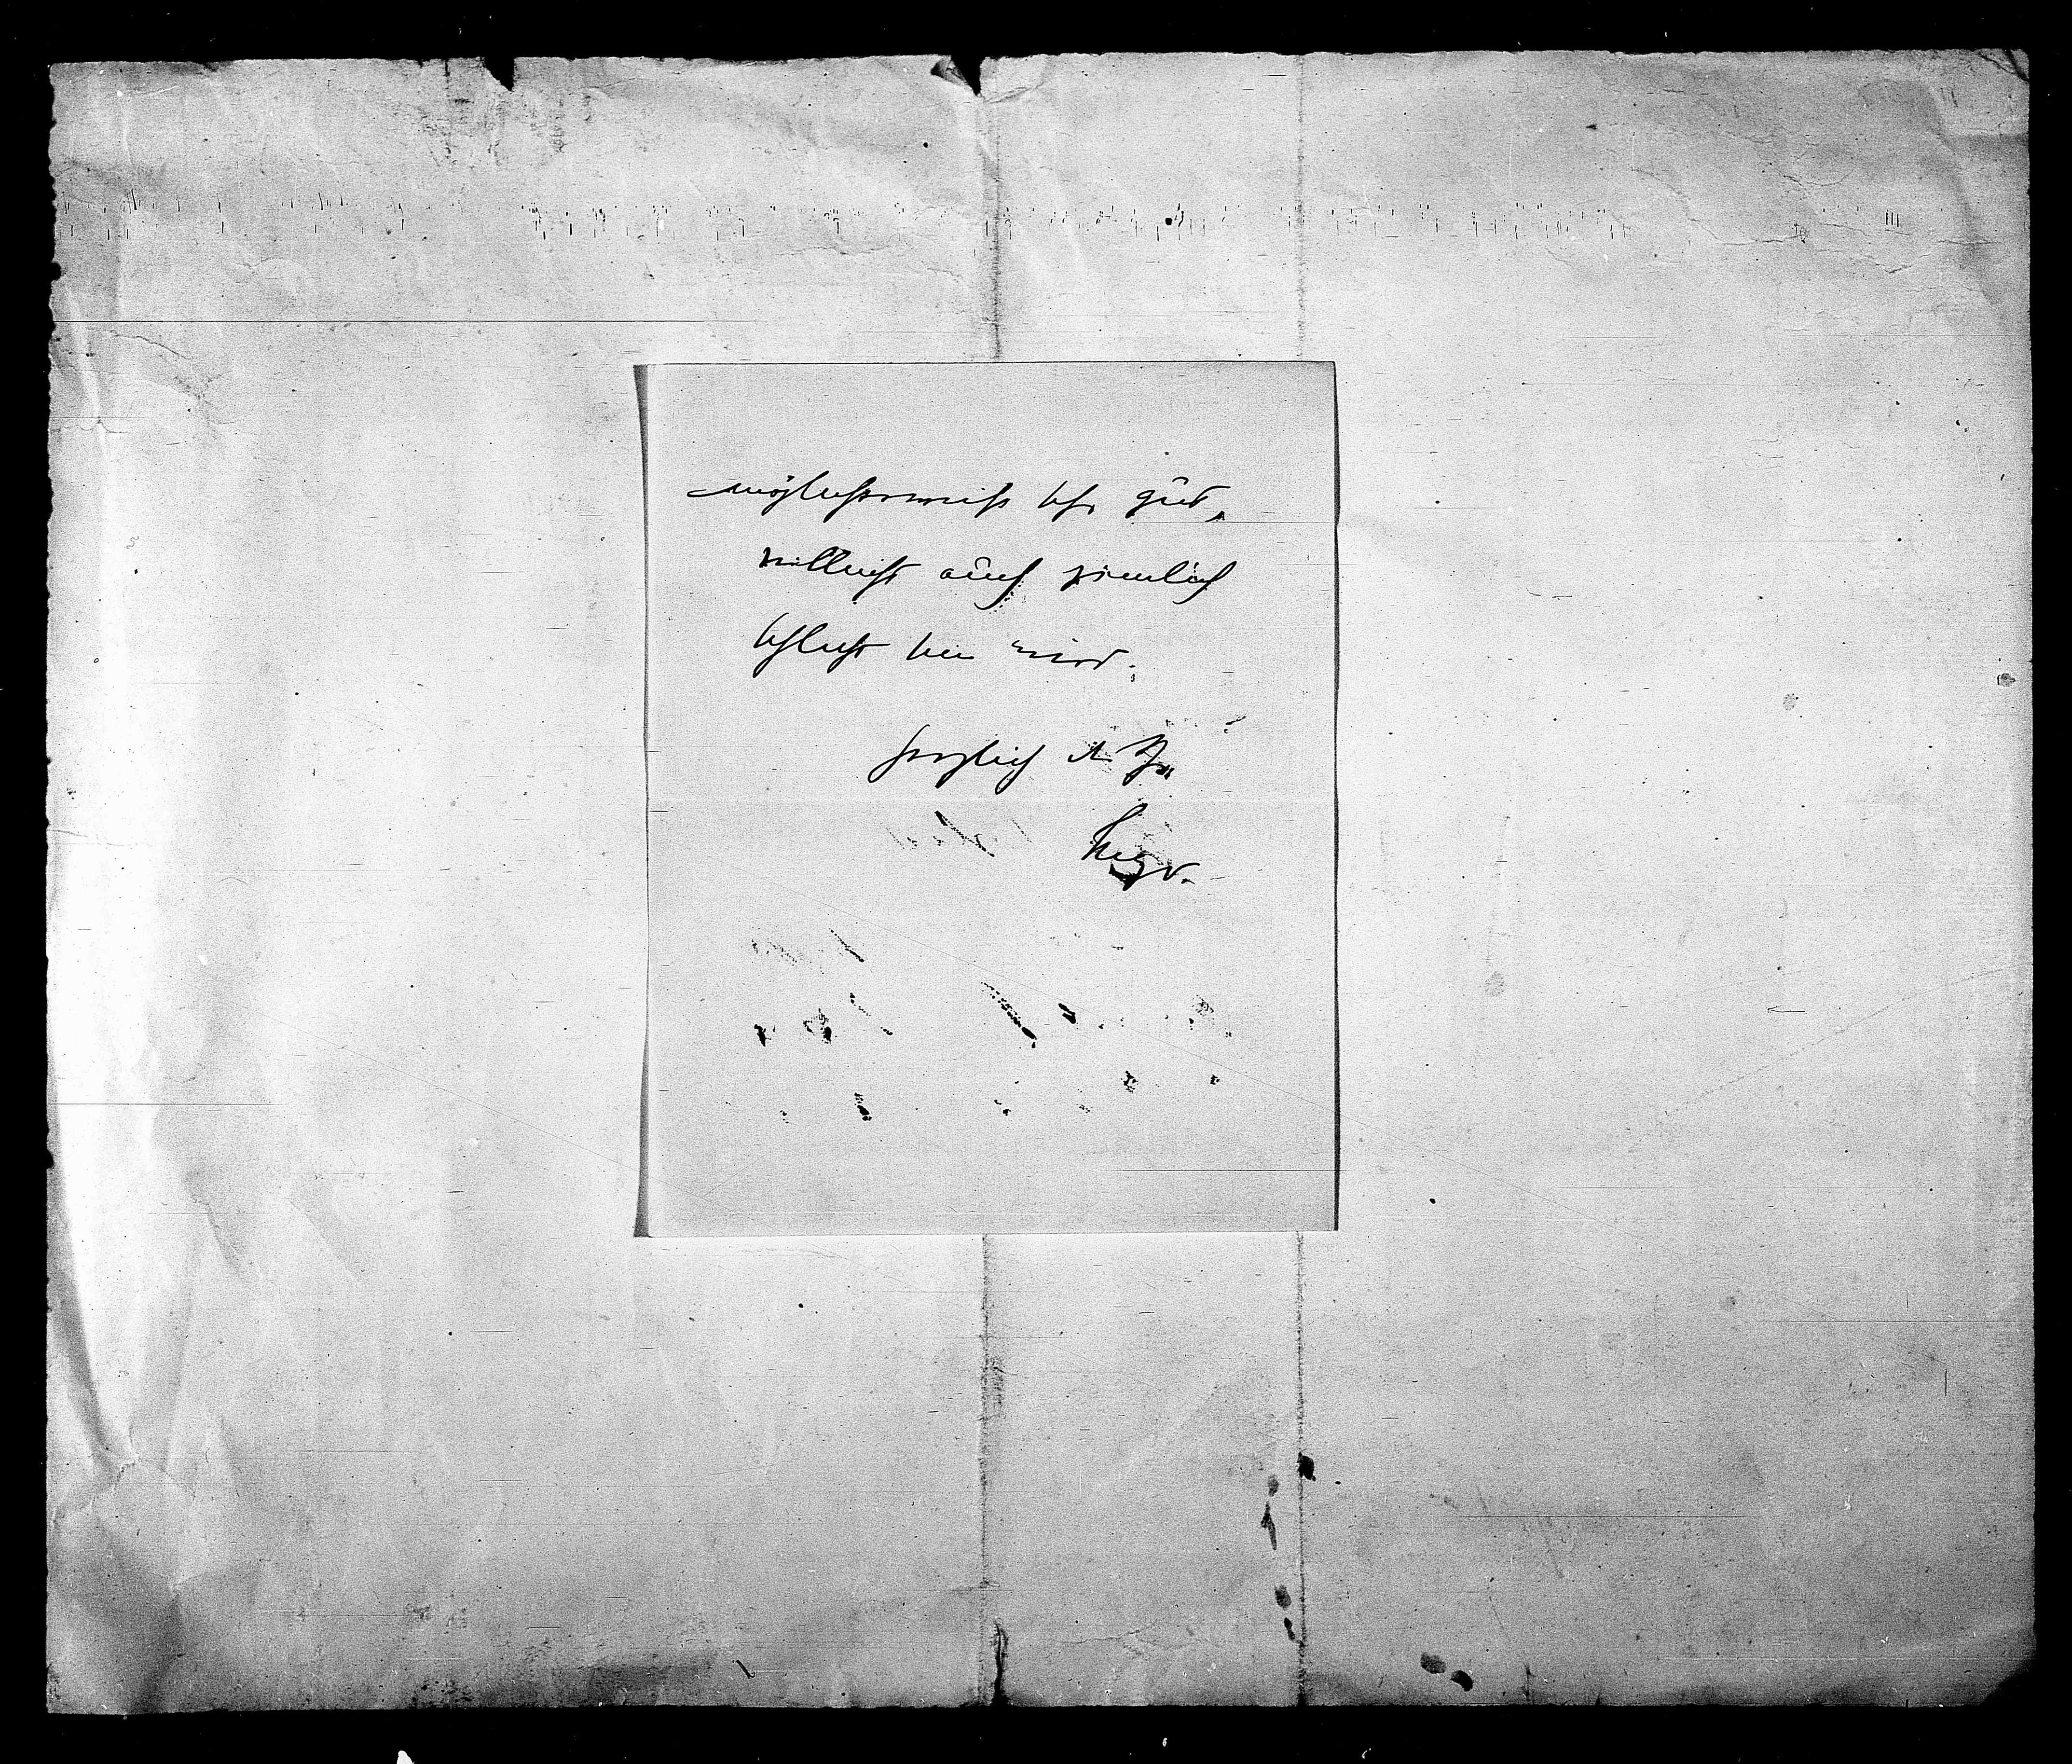 möglicherweise sehr gut,
vielleicht auch ziemlich
schlecht sein wird.
herzlich d. Ihr